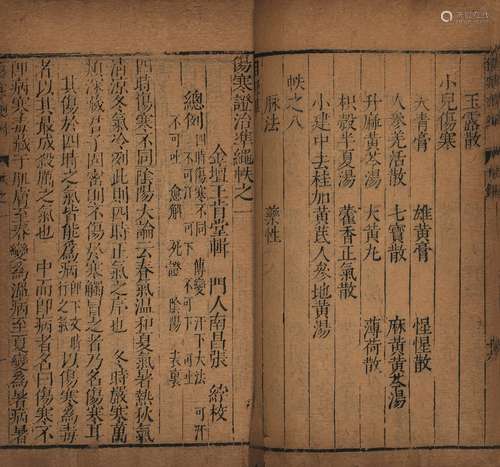 玉露散
小兒傷寒
大青膏 雄黃膏 惺惺散
人參羌活散 七寶散 麻黃黃芩湯
升麻黃芩湯 大黃丸 薄荷散
枳殼半夏湯 藿香正氣散
小建中去桂加黃茋人參地黃湯
帙之八
脉法 藥性
傷寒證治準繩帙之一
金壇王肯堂輯 門人南昌張 綬校
總例 四時傷寒不同 傳變 汗下大法 可汗
不可汗 可下 不可下 可吐
不可吐 愈解 死證 陰陽 表裏
四時傷寒不同陰陽大論云春氣溫和夏氣暑熱秋氣
清涼冬氣冷冽此則四時正氣之序也 冬時嚴寒萬
類深藏君子固密則不傷於寒觸冒之者乃名傷寒耳
其傷於四時之氣皆能爲病 以傷寒爲毒
者以其最成殺厲之氣也 中而即病者名曰傷寒不
即病寒毒藏於肌膚至春變爲溫病至夏變爲暑病暑